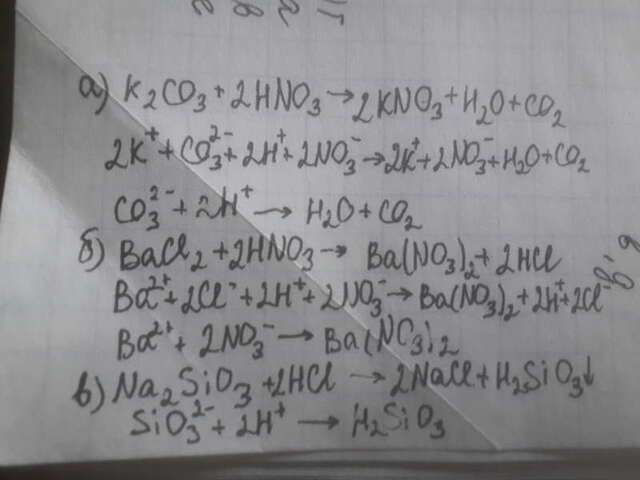 а) K₂CO₃ + 2HNO₃ → 2KNO₃ + H₂O + CO₂
2K⁺ + CO₃²⁻ + 2H⁺ + 2NO₃⁻ → 2K⁺ + 2NO₃⁻ + H₂O + CO₂
CO₃²⁻ + 2H⁺ → H₂O + CO₂
б) BaCl₂ + 2HNO₃ → Ba(NO₃)₂ + 2HCl
Ba²⁺ + 2Cl⁻ + 2H⁺ + 2NO₃⁻ → Ba(NO₃)₂ + 2H⁺ + 2Cl⁻
Ba²⁺ + 2NO₃⁻ → Ba(NO₃)₂
в) Na₂SiO₃ + 2HCl → 2NaCl + H₂SiO₃↓
SiO₃²⁻ + 2H⁺ → H₂SiO₃